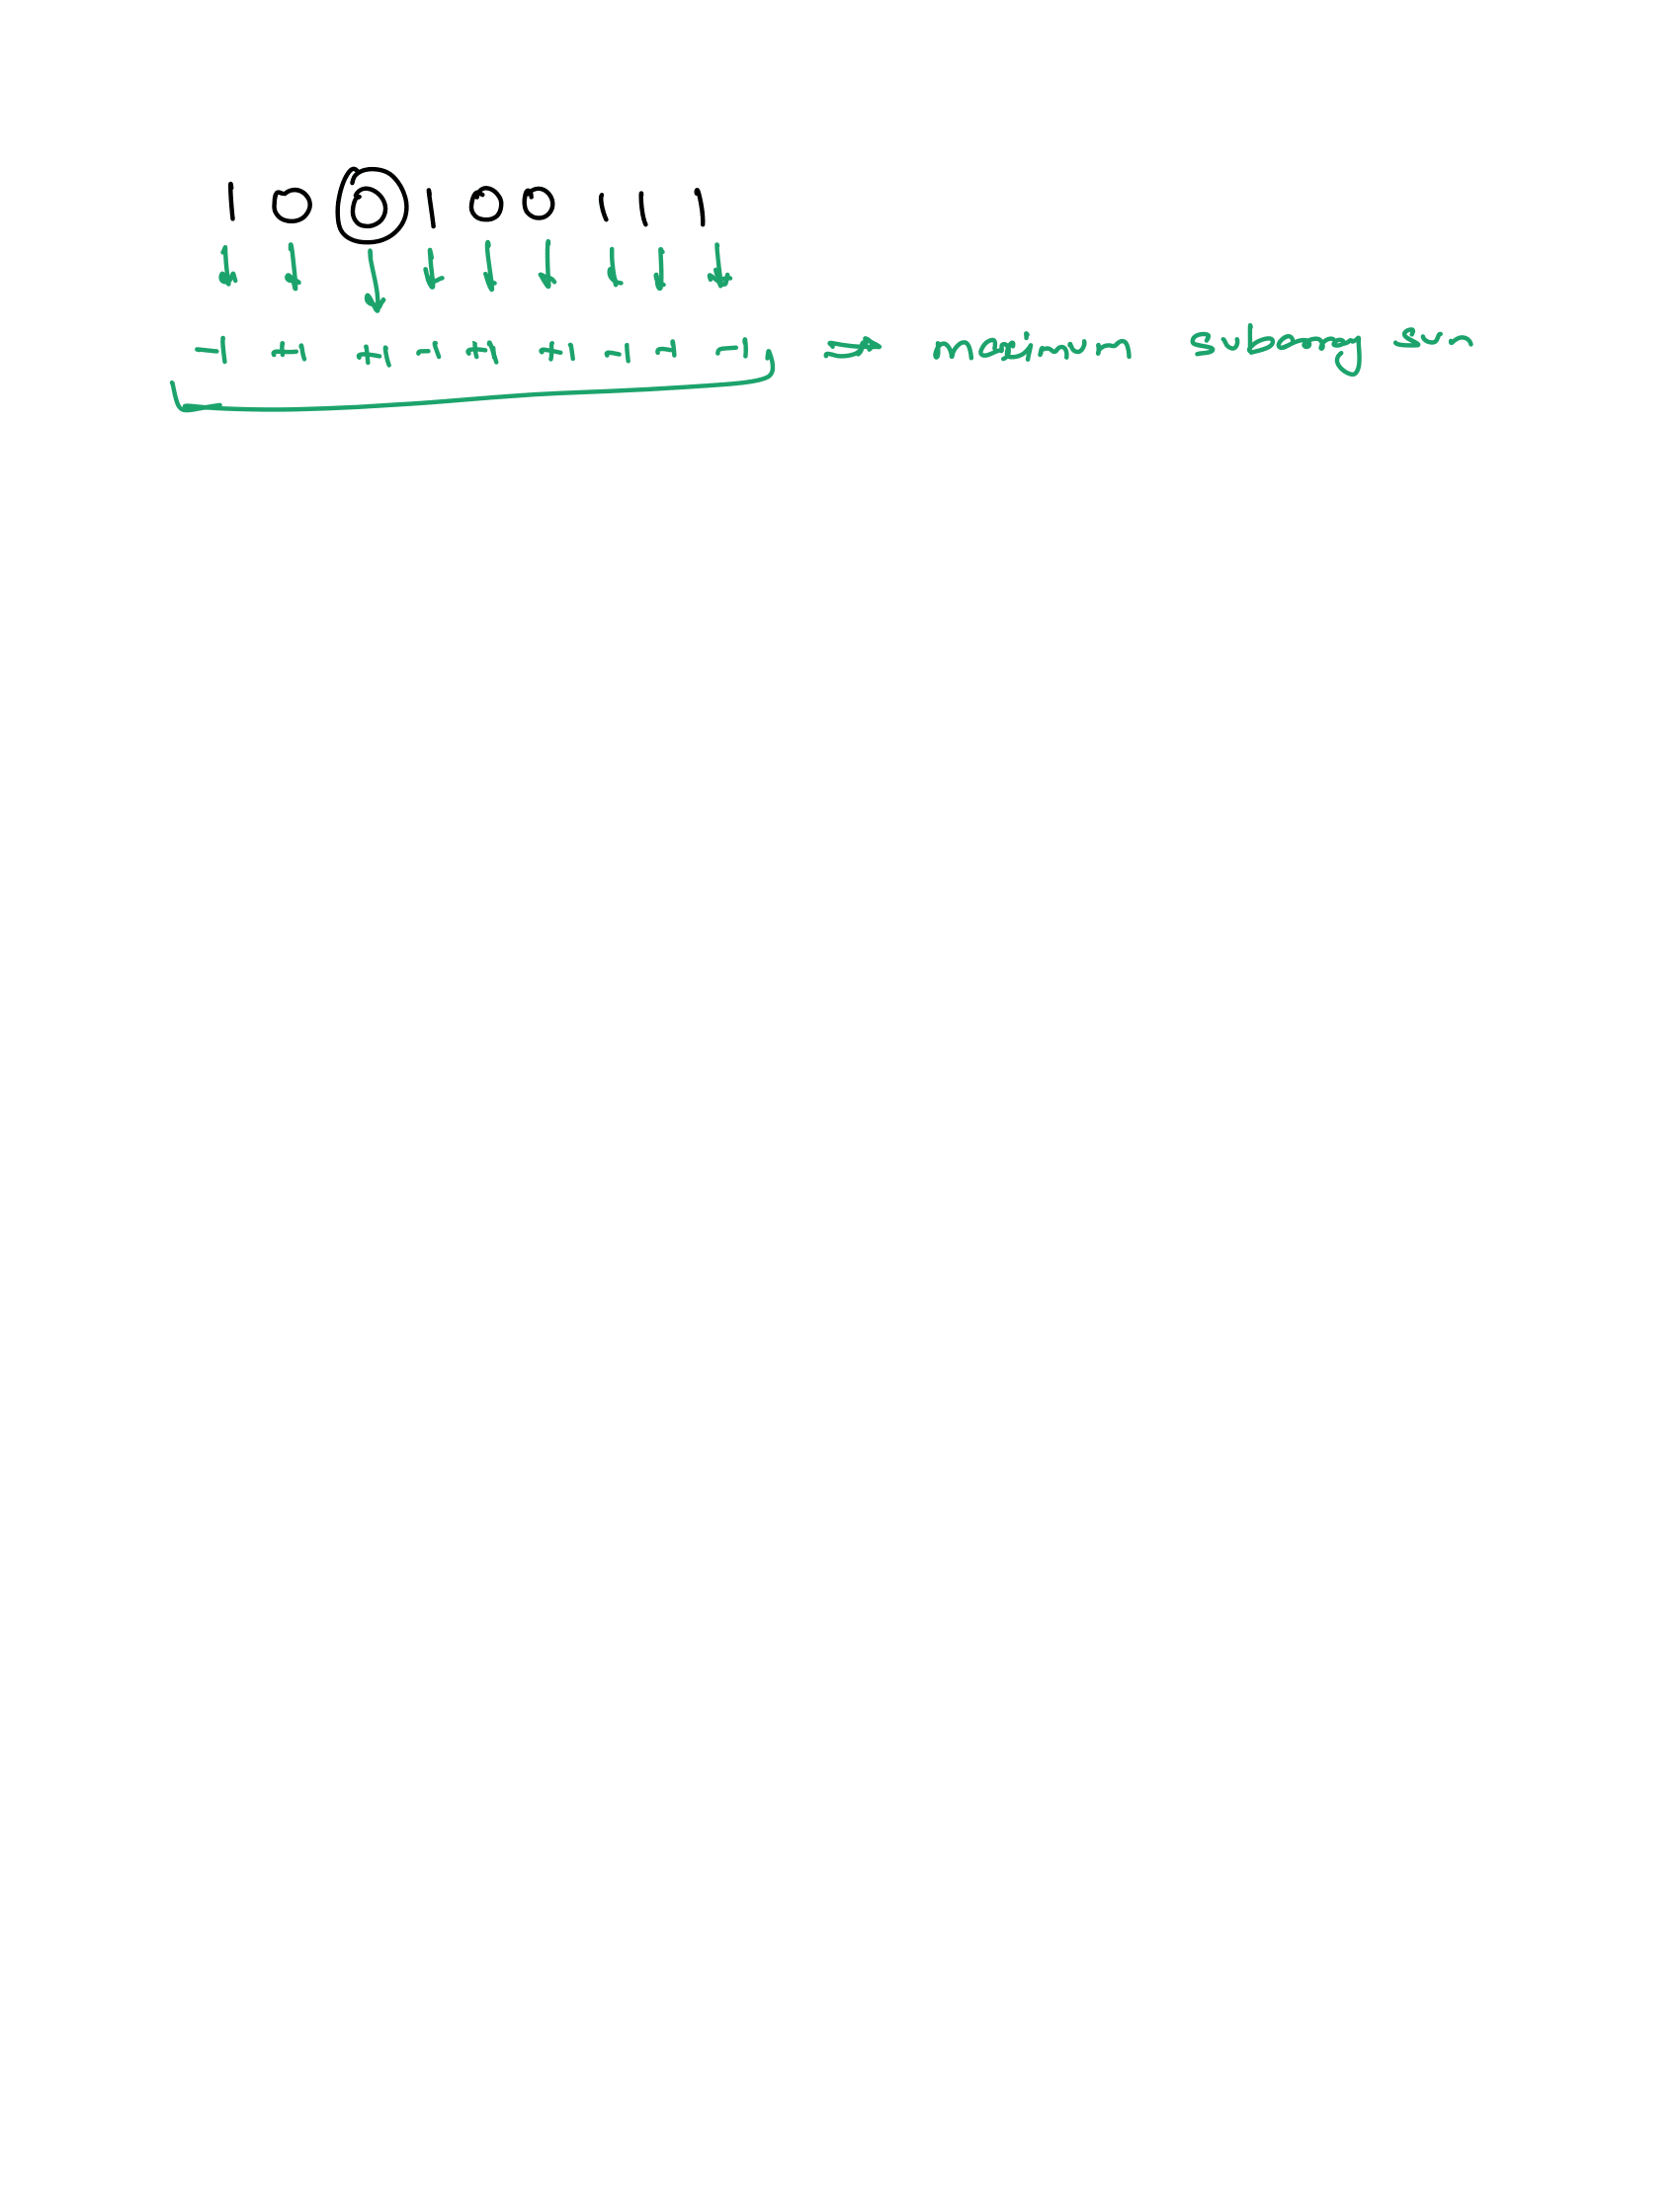 1 0 0 1 0 0 1 1 1
-1 +1 +1 -1 +1 +1 -1 -1 -1 ⇒ maximum subarray sum